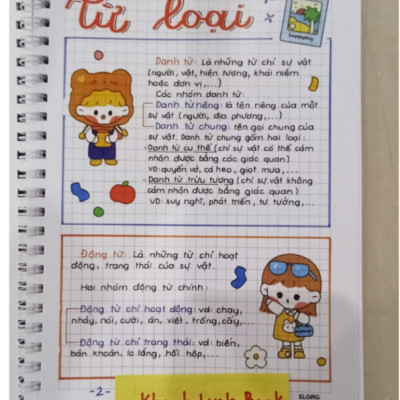 Từ loại
Danh từ: Là những từ chỉ sự vật
(người, vật, hiện tượng, khái niệm
hoặc đơn vị,...)
Các nhóm danh từ:
Danh từ riêng: là tên riêng của một
sự vật (người, địa phương,...)
Danh từ chung: tên gọi chung của
sự vật. Danh từ chung gồm hai loại:
-Danh từ cụ thể (chỉ sự vật có thể cảm
nhận được bằng các giác quan)
VD: quyển vở, cá heo, giọt mưa,...
-Danh từ trừu tượng (chỉ sự vật không
cảm nhận được bằng giác quan)
VD: suy nghĩ, phát triển, tư tưởng,...
Động từ: Là những từ chỉ hoạt
động, trạng thái của sự vật.
Hai nhóm động từ chính:
Động từ chỉ hoạt động: vd: chạy,
nhảy, nói, cười, ăn, viết, trồng, cấy,...
Động từ chỉ trạng thái: vd: biến,
băn khoăn, lo lắng, hồi hộp,...
-2-
KLONG